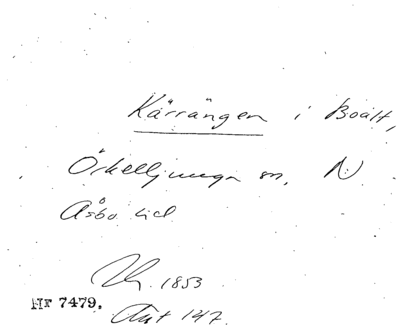 Kärrängen i Boalt,
Örkelljunga sn, N
Åsbo hd
1853
HF 7479.
Akt 147